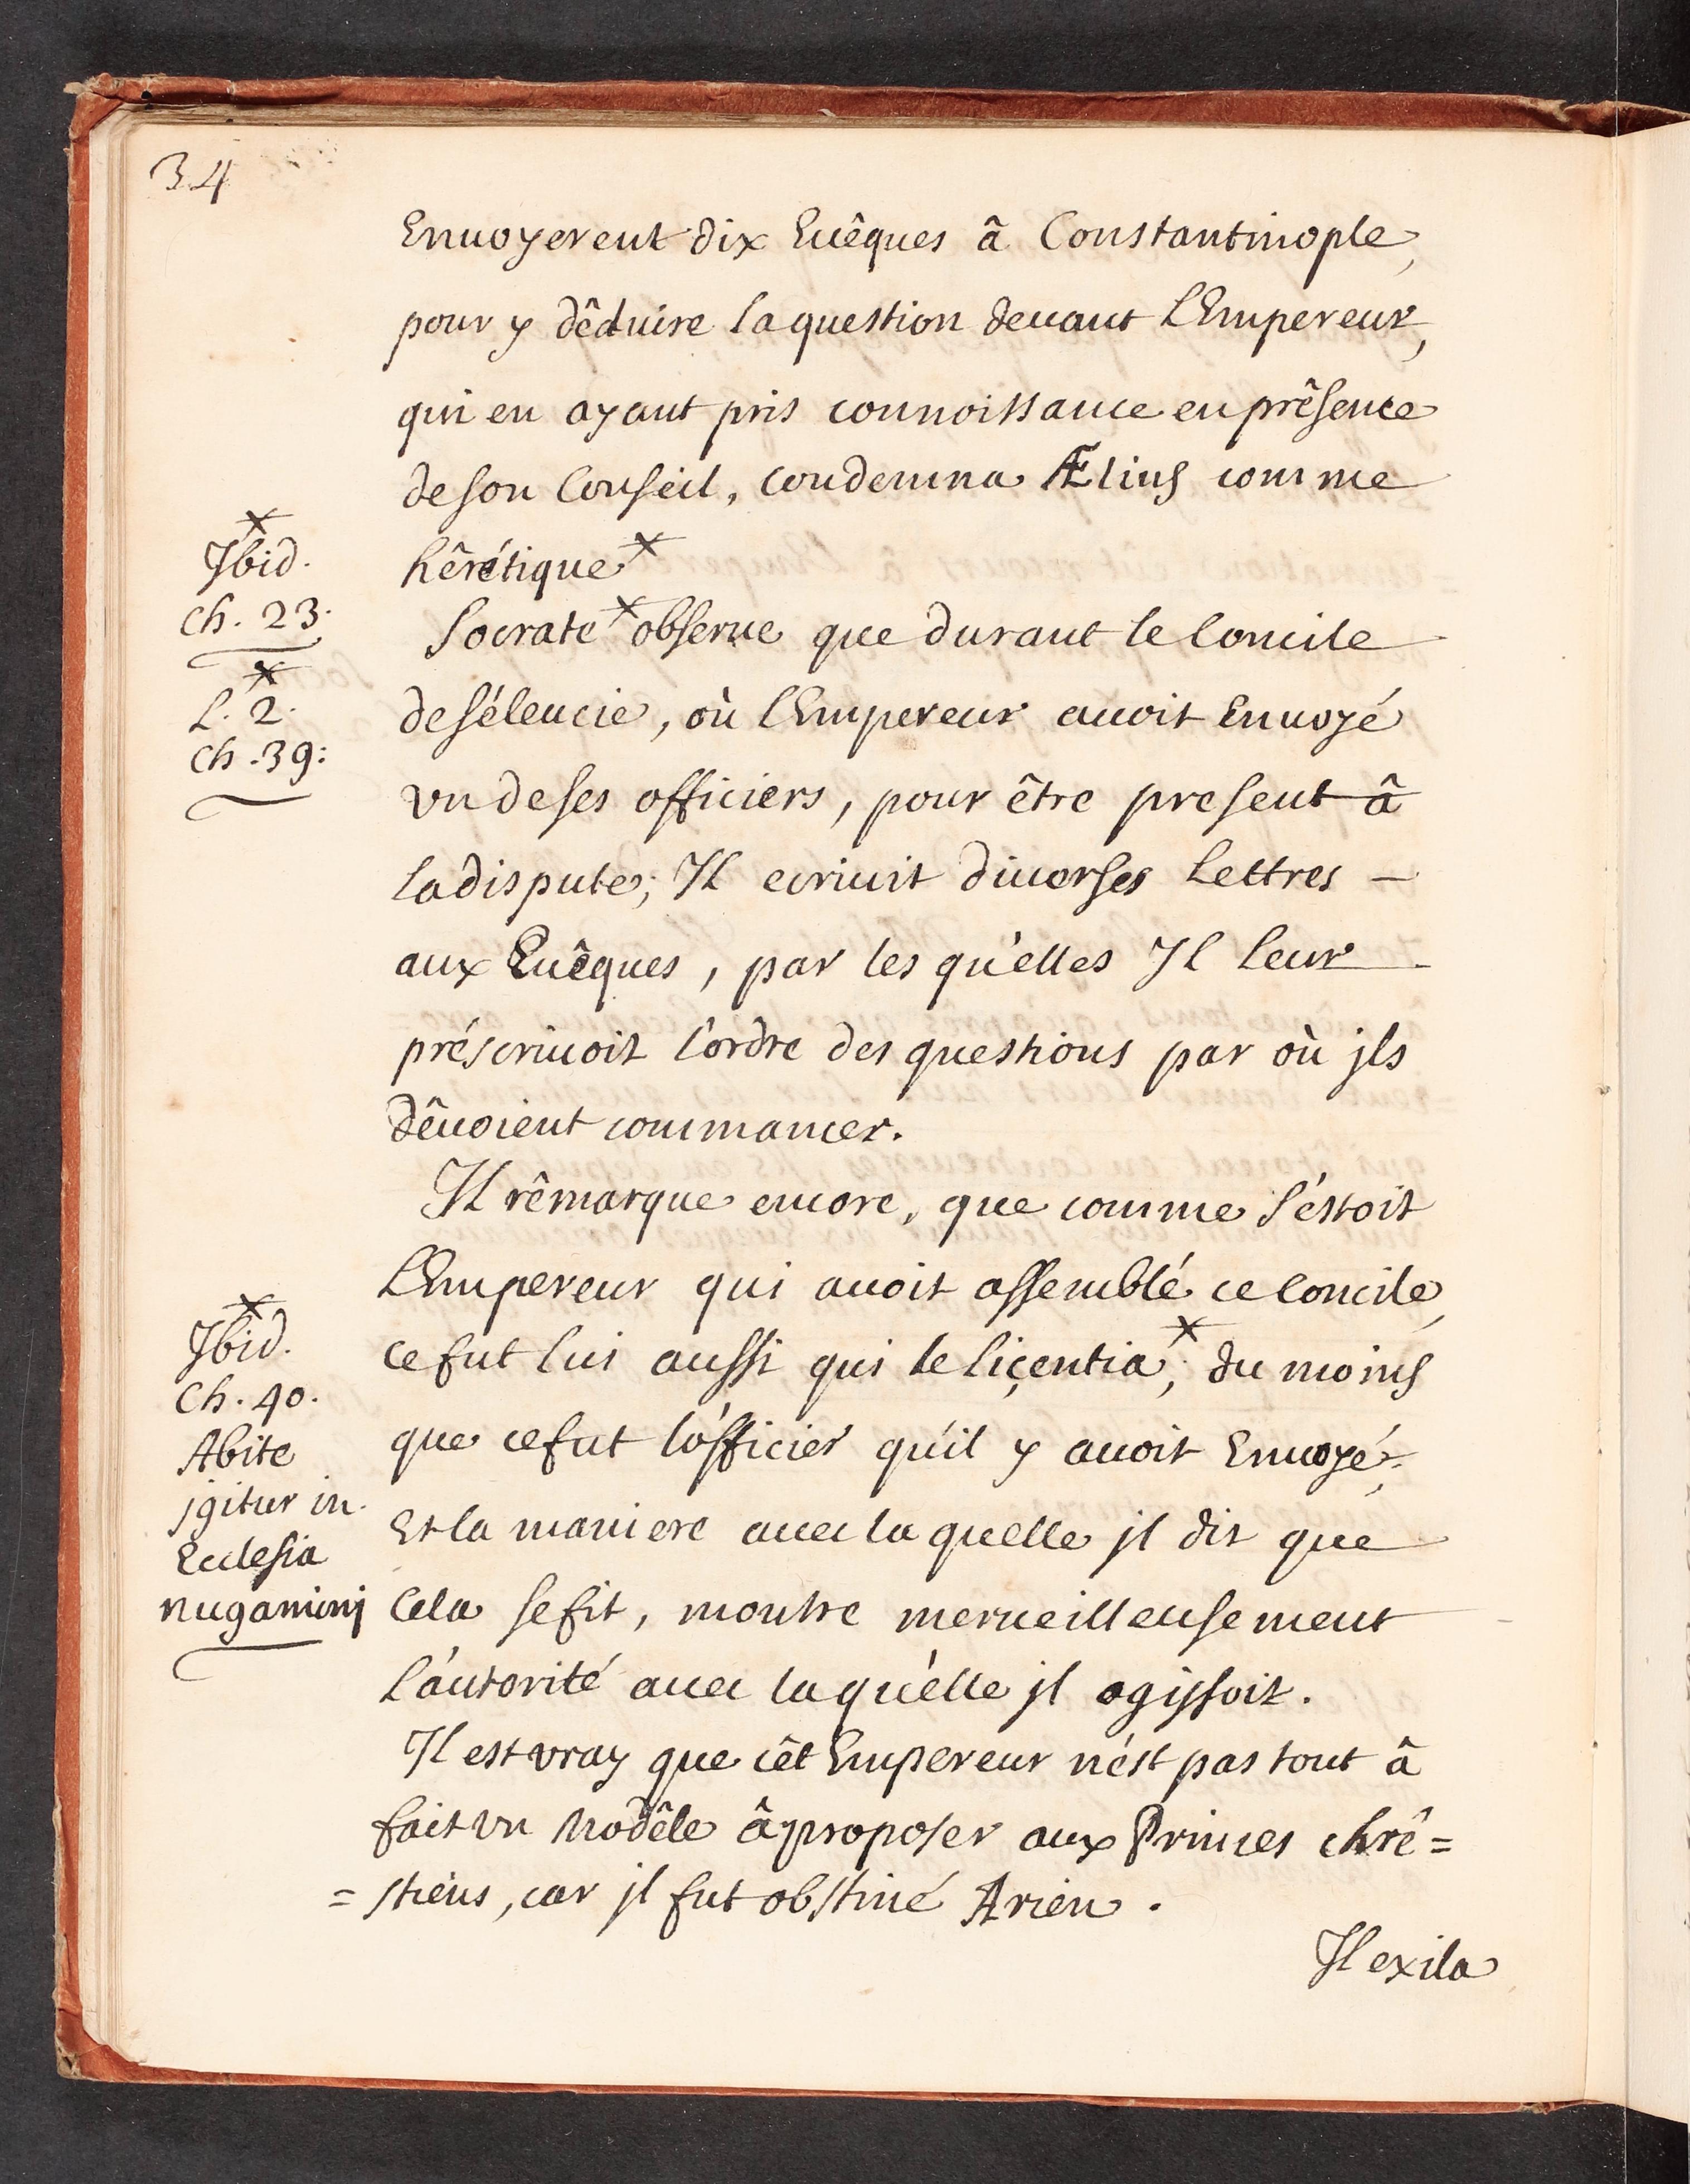 34
Enuoyerent dix Euêques â Constantinople,
pour y dêduire la question deuant L'Empereur,
qui en ayant pris connoissance en prêsence
de son Conseil, condemna Ælius comme
hêrétique x
x
Ibid.
Ch. 23.
Socrate x obserue que durant le Concile
x
L. 2.
Ch. 39:
de séleucie, où l'Empereur auoit Enuoyé
vn de ses officiers, pour être present â
la dispute; Il ecriuit diuerses Lettres –
aux Euêques, par les qu'elles Il leur
préscriuoit l'ordre des questions par où jls
dêuoient commancer.
Il rêmarque encore, que comme s'éstoit
L'Empereur qui auoit assemblé ce Concile,
ce fut lui aussi qui le liçentia x; du moins
que ce fut l'officier qu'il y auoit Enuoyé;
Et la maniere auec la quelle jl dit que
Cela se fit, montre merueilleusement
L'autorité auec laqu'elle jl agissoit.
x
Ibid.
Ch. 40.
Abite
jgitur in
Ecclesia
nugaminj
Il est vray que cêt Empereur n'ést pas tout â
fait vn modêle â proposer aux Princes chrê=
=stiens, car jl fut obstiné Arien.
Il exila